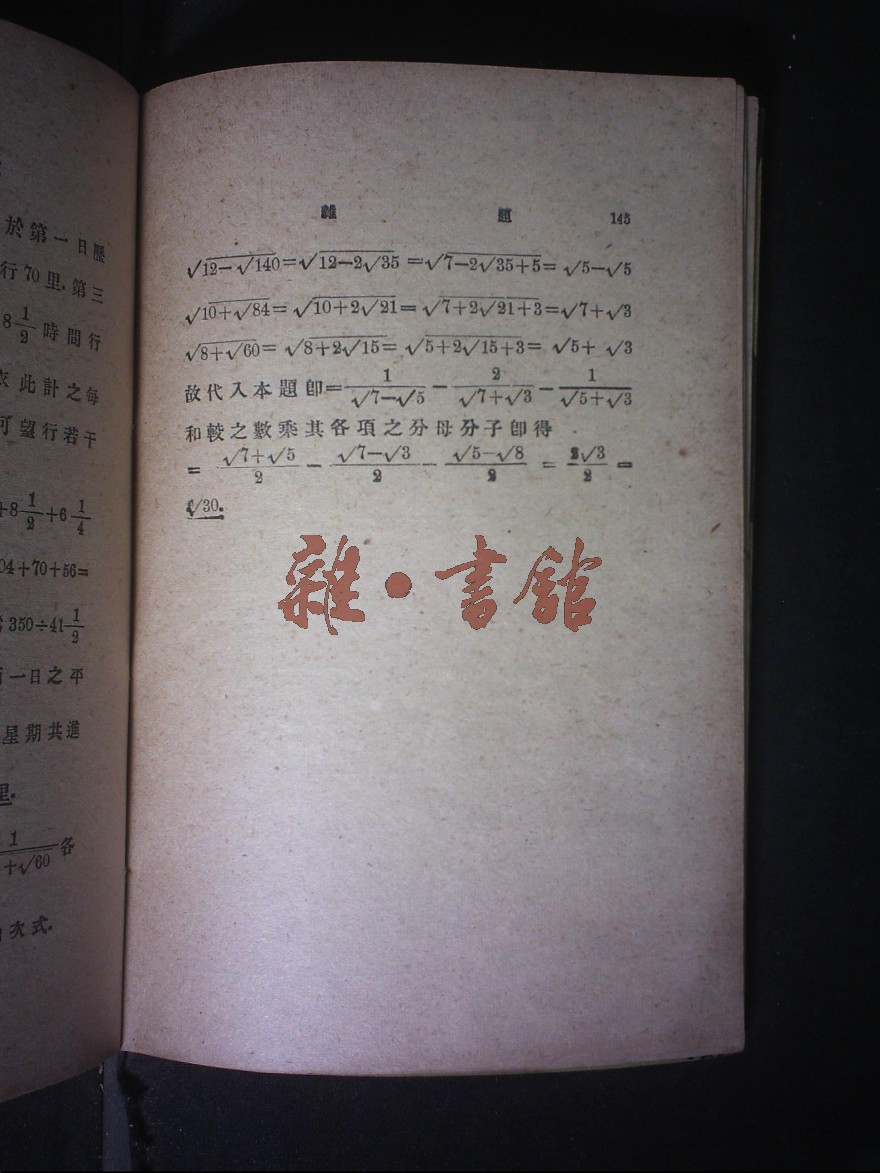 於第一日歷
行70里.第三
8 1/2 時間行
此計之每
可望行若干
+8 1/2 +6 1/4
04+70+56=
350÷41 1/2
一日之平
星期共進
里.
1/(+√60) 各
次式.
雜 題 145
√(12-√140)=√(12-2√35)=√(7-2√35+5)= √5-√5
√(10+√84)=√(10+2√21)=√(7+2√21+3)=√7+√3
√(8+√60)=√(8+2√15)=√(5+2√15+3)= √5+ √3
故代入本題卽= 1/(√7-√5) - 2/(√7+√3) - 1/(√5+√3)
和較之數乘其各項之分母分子卽得
= (√7+√5)/2 - (√7-√3)/2 - (√5-√8)/2 = 2√3/2 =
√30.
雜•書館